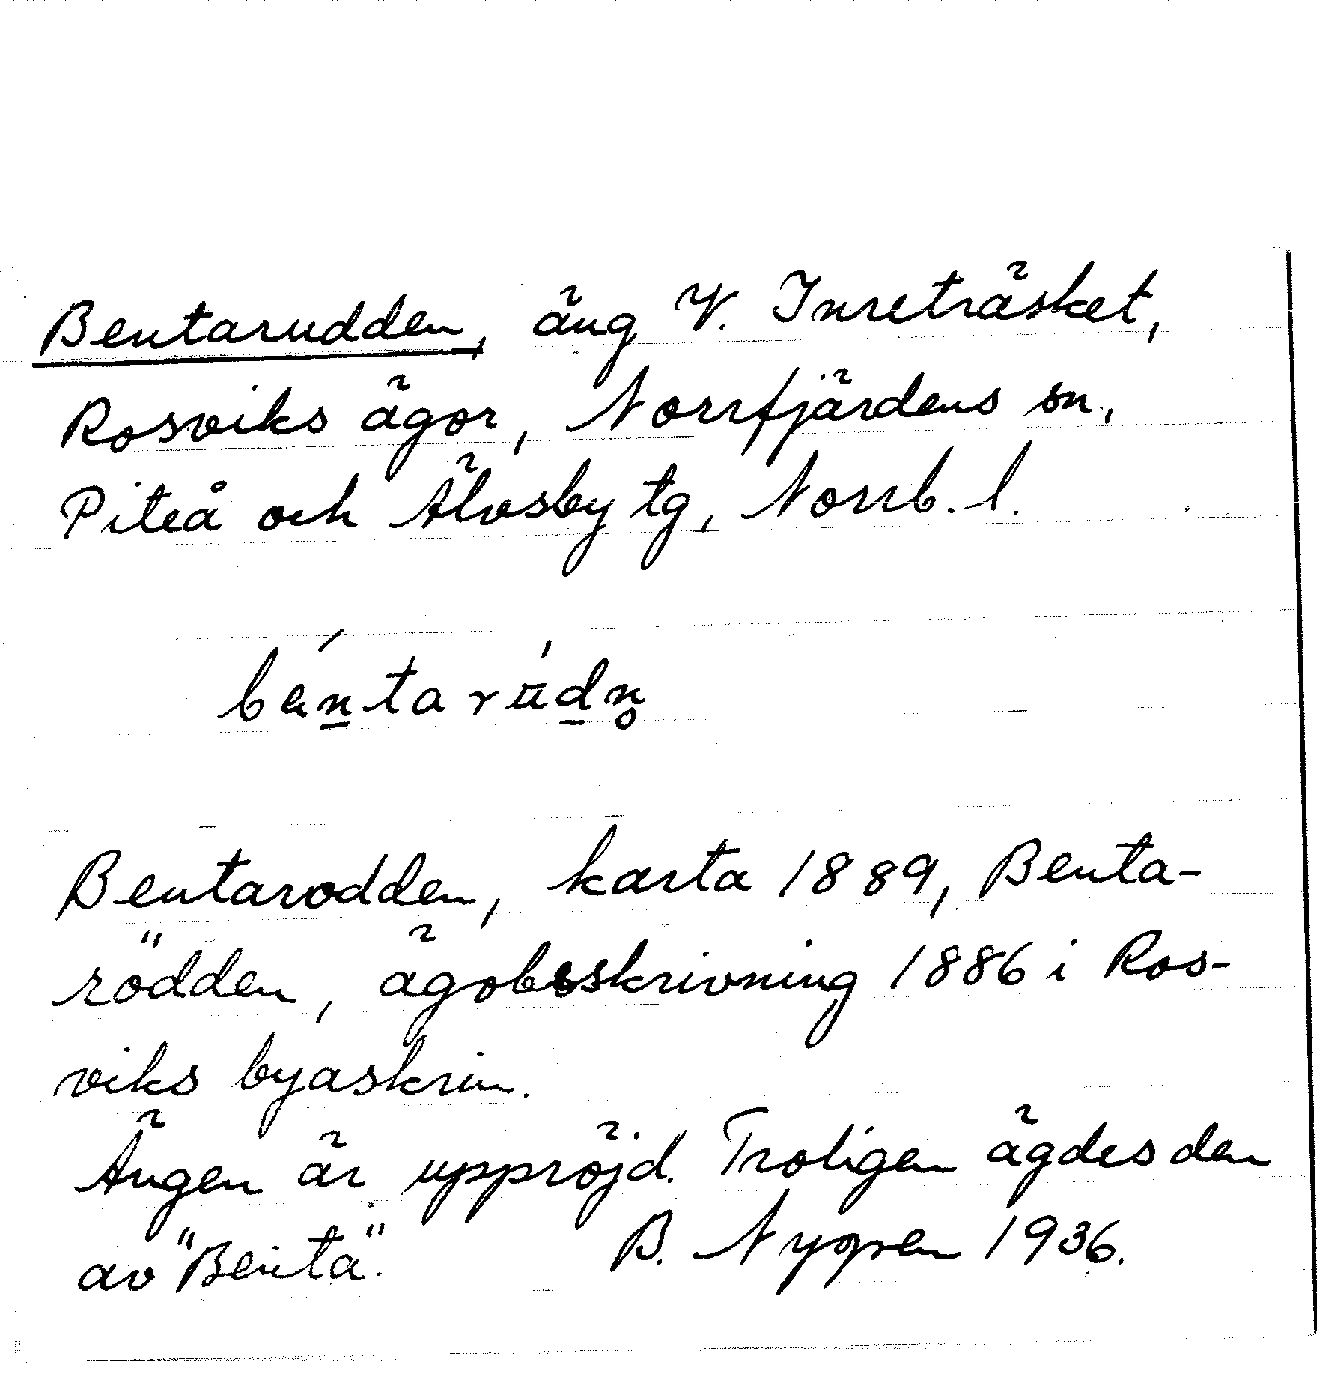 Bentarudden, äng V. Inreträsket,
Rosviks ägor, Norrfjärdens sn,
Piteå och Älvsby tg, Norrb. l.
Bentarodden, karta 1889, Benta-
rödden, ägobeskrivning 1886 i Ros-
viks byaskrin.
Ängen är uppröjd. Troligen ägdes den
av "Benta". B. Nygren 1936.